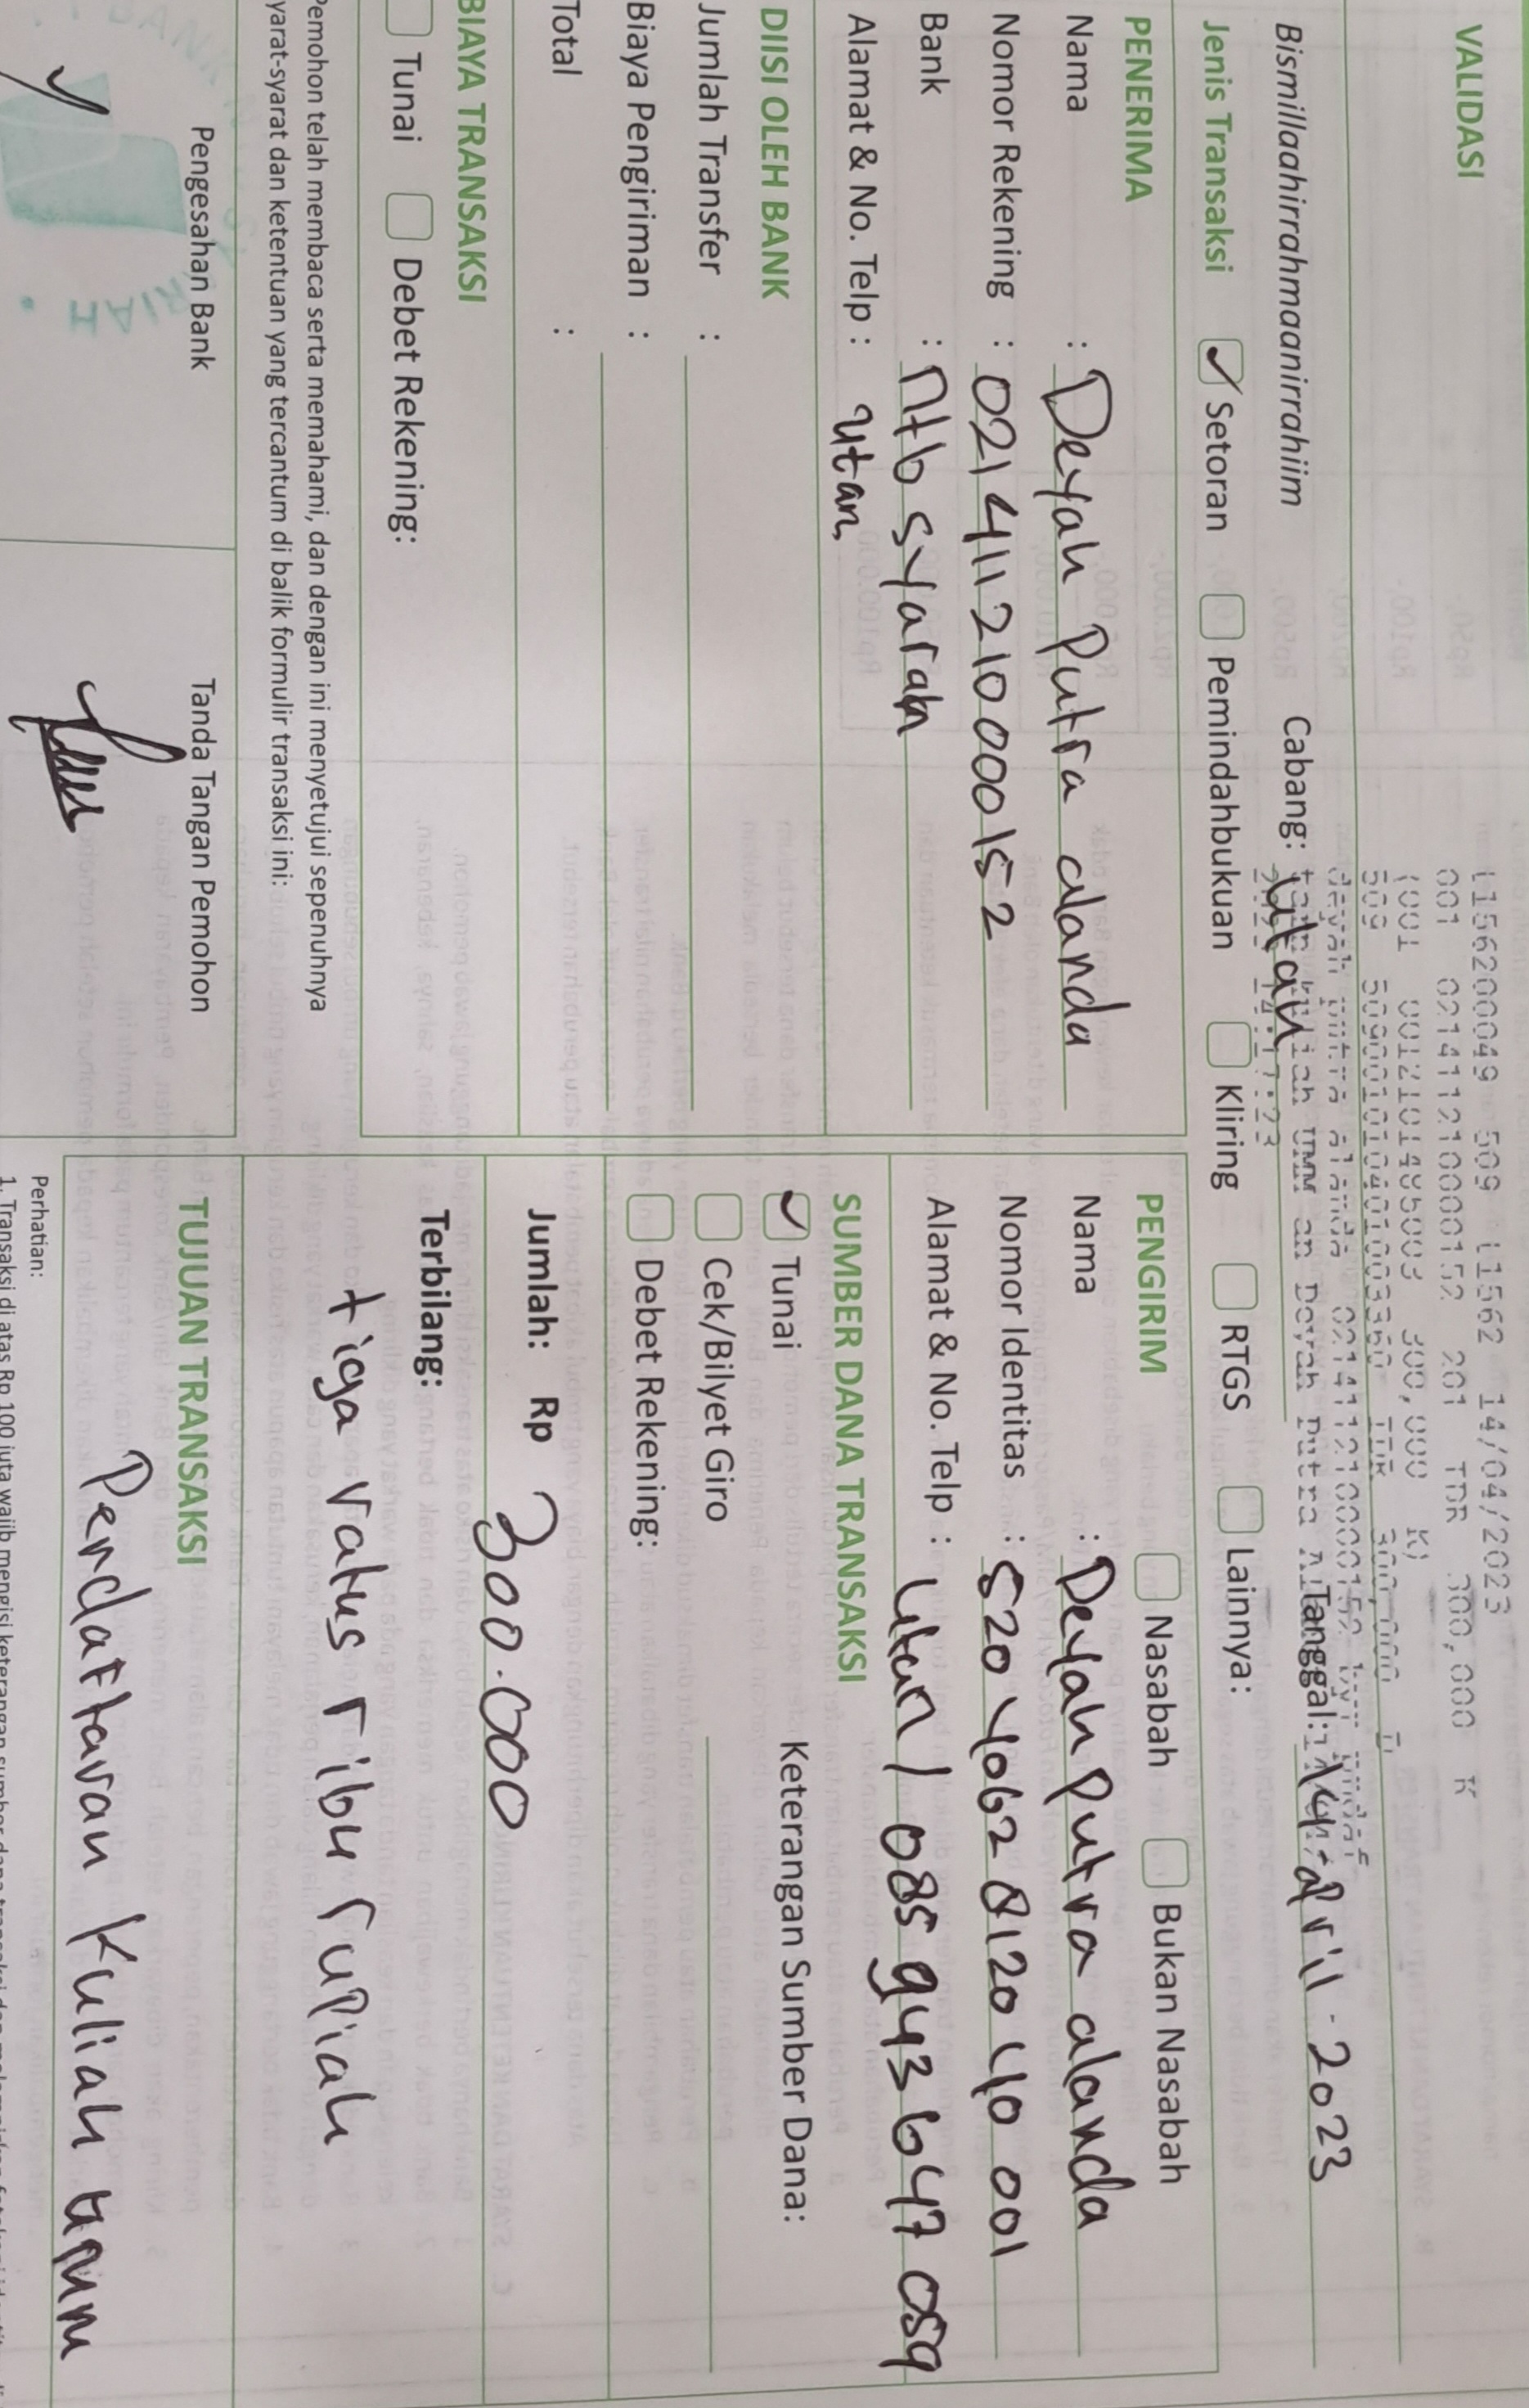 VALIDASI
L156200049 509 L1562 14/04/2023
001 0214112100000152 201 IDR 300,000 K
300,000 K)
509 IDR 300,000 D
deyah putra alanda
Bismillaahirrahmaanirrahiim
Cabang: utan
Tanggal: 14 april - 2023
Jenis Transaksi
Setoran
Pemindahbukuan
Kliring
RTGS
Lainnya:
PENERIMA
Nama : Deyah Putra alanda
Nomor Rekening : 0214112100000152
Bank : ntb syarah
Alamat & No. Telp : utan
DIISI OLEH BANK
Jumlah Transfer :
Biaya Pengiriman :
Total :
BIAYA TRANSAKSI
Tunai
Debet Rekening:
Pemohon telah membaca serta memahami, dan dengan ini menyetujui sepenuhnya
yarat-syarat dan ketentuan yang tercantum di balik formulir transaksi ini:
Pengesahan Bank
Tanda Tangan Pemohon
PENGIRIM
Nasabah
Bukan Nasabah
Nama : Deyah Putra alanda
Nomor Identitas : 5204062812040001
Alamat & No. Telp : utan / 085 943 647 059
SUMBER DANA TRANSAKSI
Tunai
Keterangan Sumber Dana:
Cek/Bilyet Giro
Debet Rekening:
Jumlah: Rp 300.000
Terbilang:
tiga ratus ribu rupiah
TUJUAN TRANSAKSI
Pendaftaran Kuliah umm
Perhatian:
1. Transaksi di atas Rp 100 juta wajib mengisi keterangan sumber dana transaksi dan melampirkan fotokopi